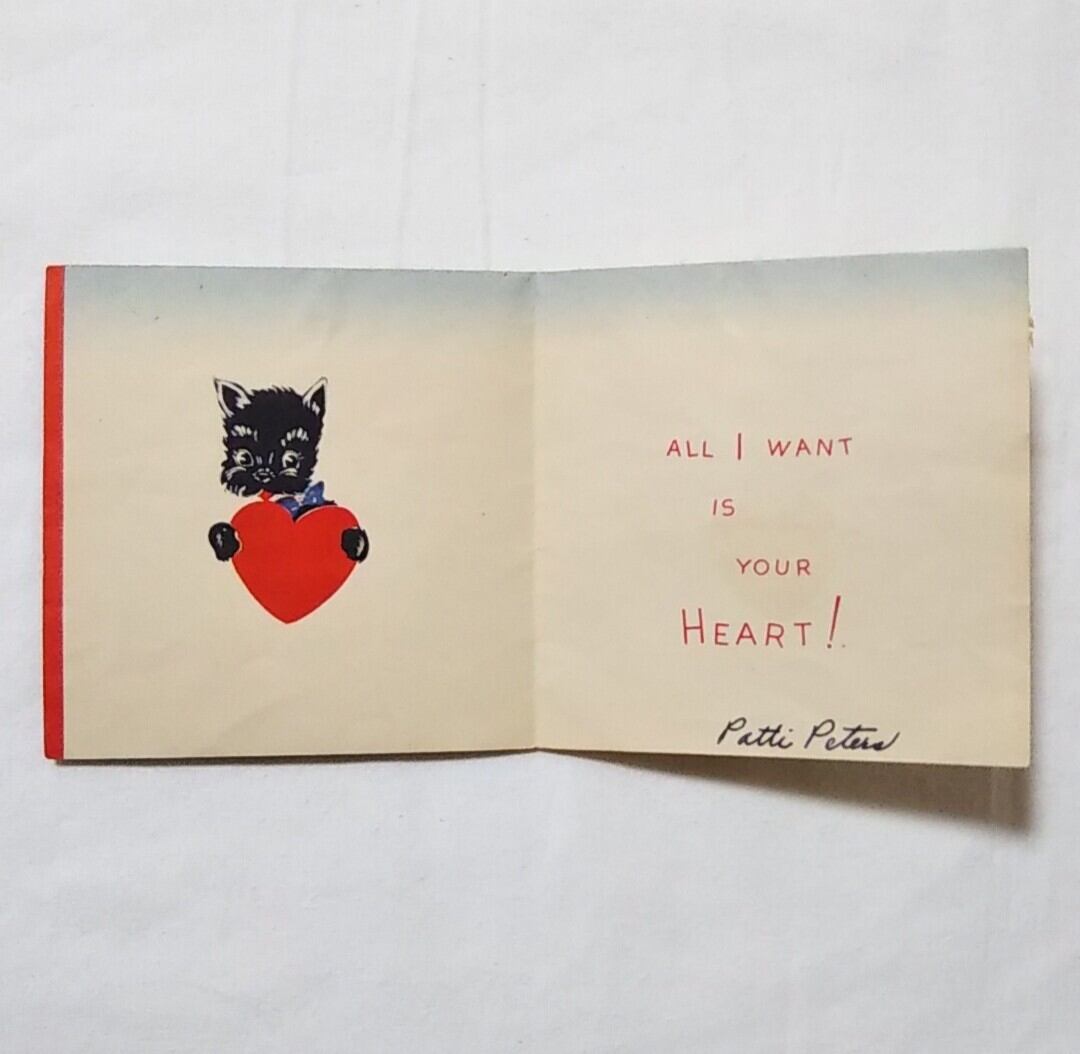 ALL I WANT
IS
YOUR
HEART!
Patti Peters